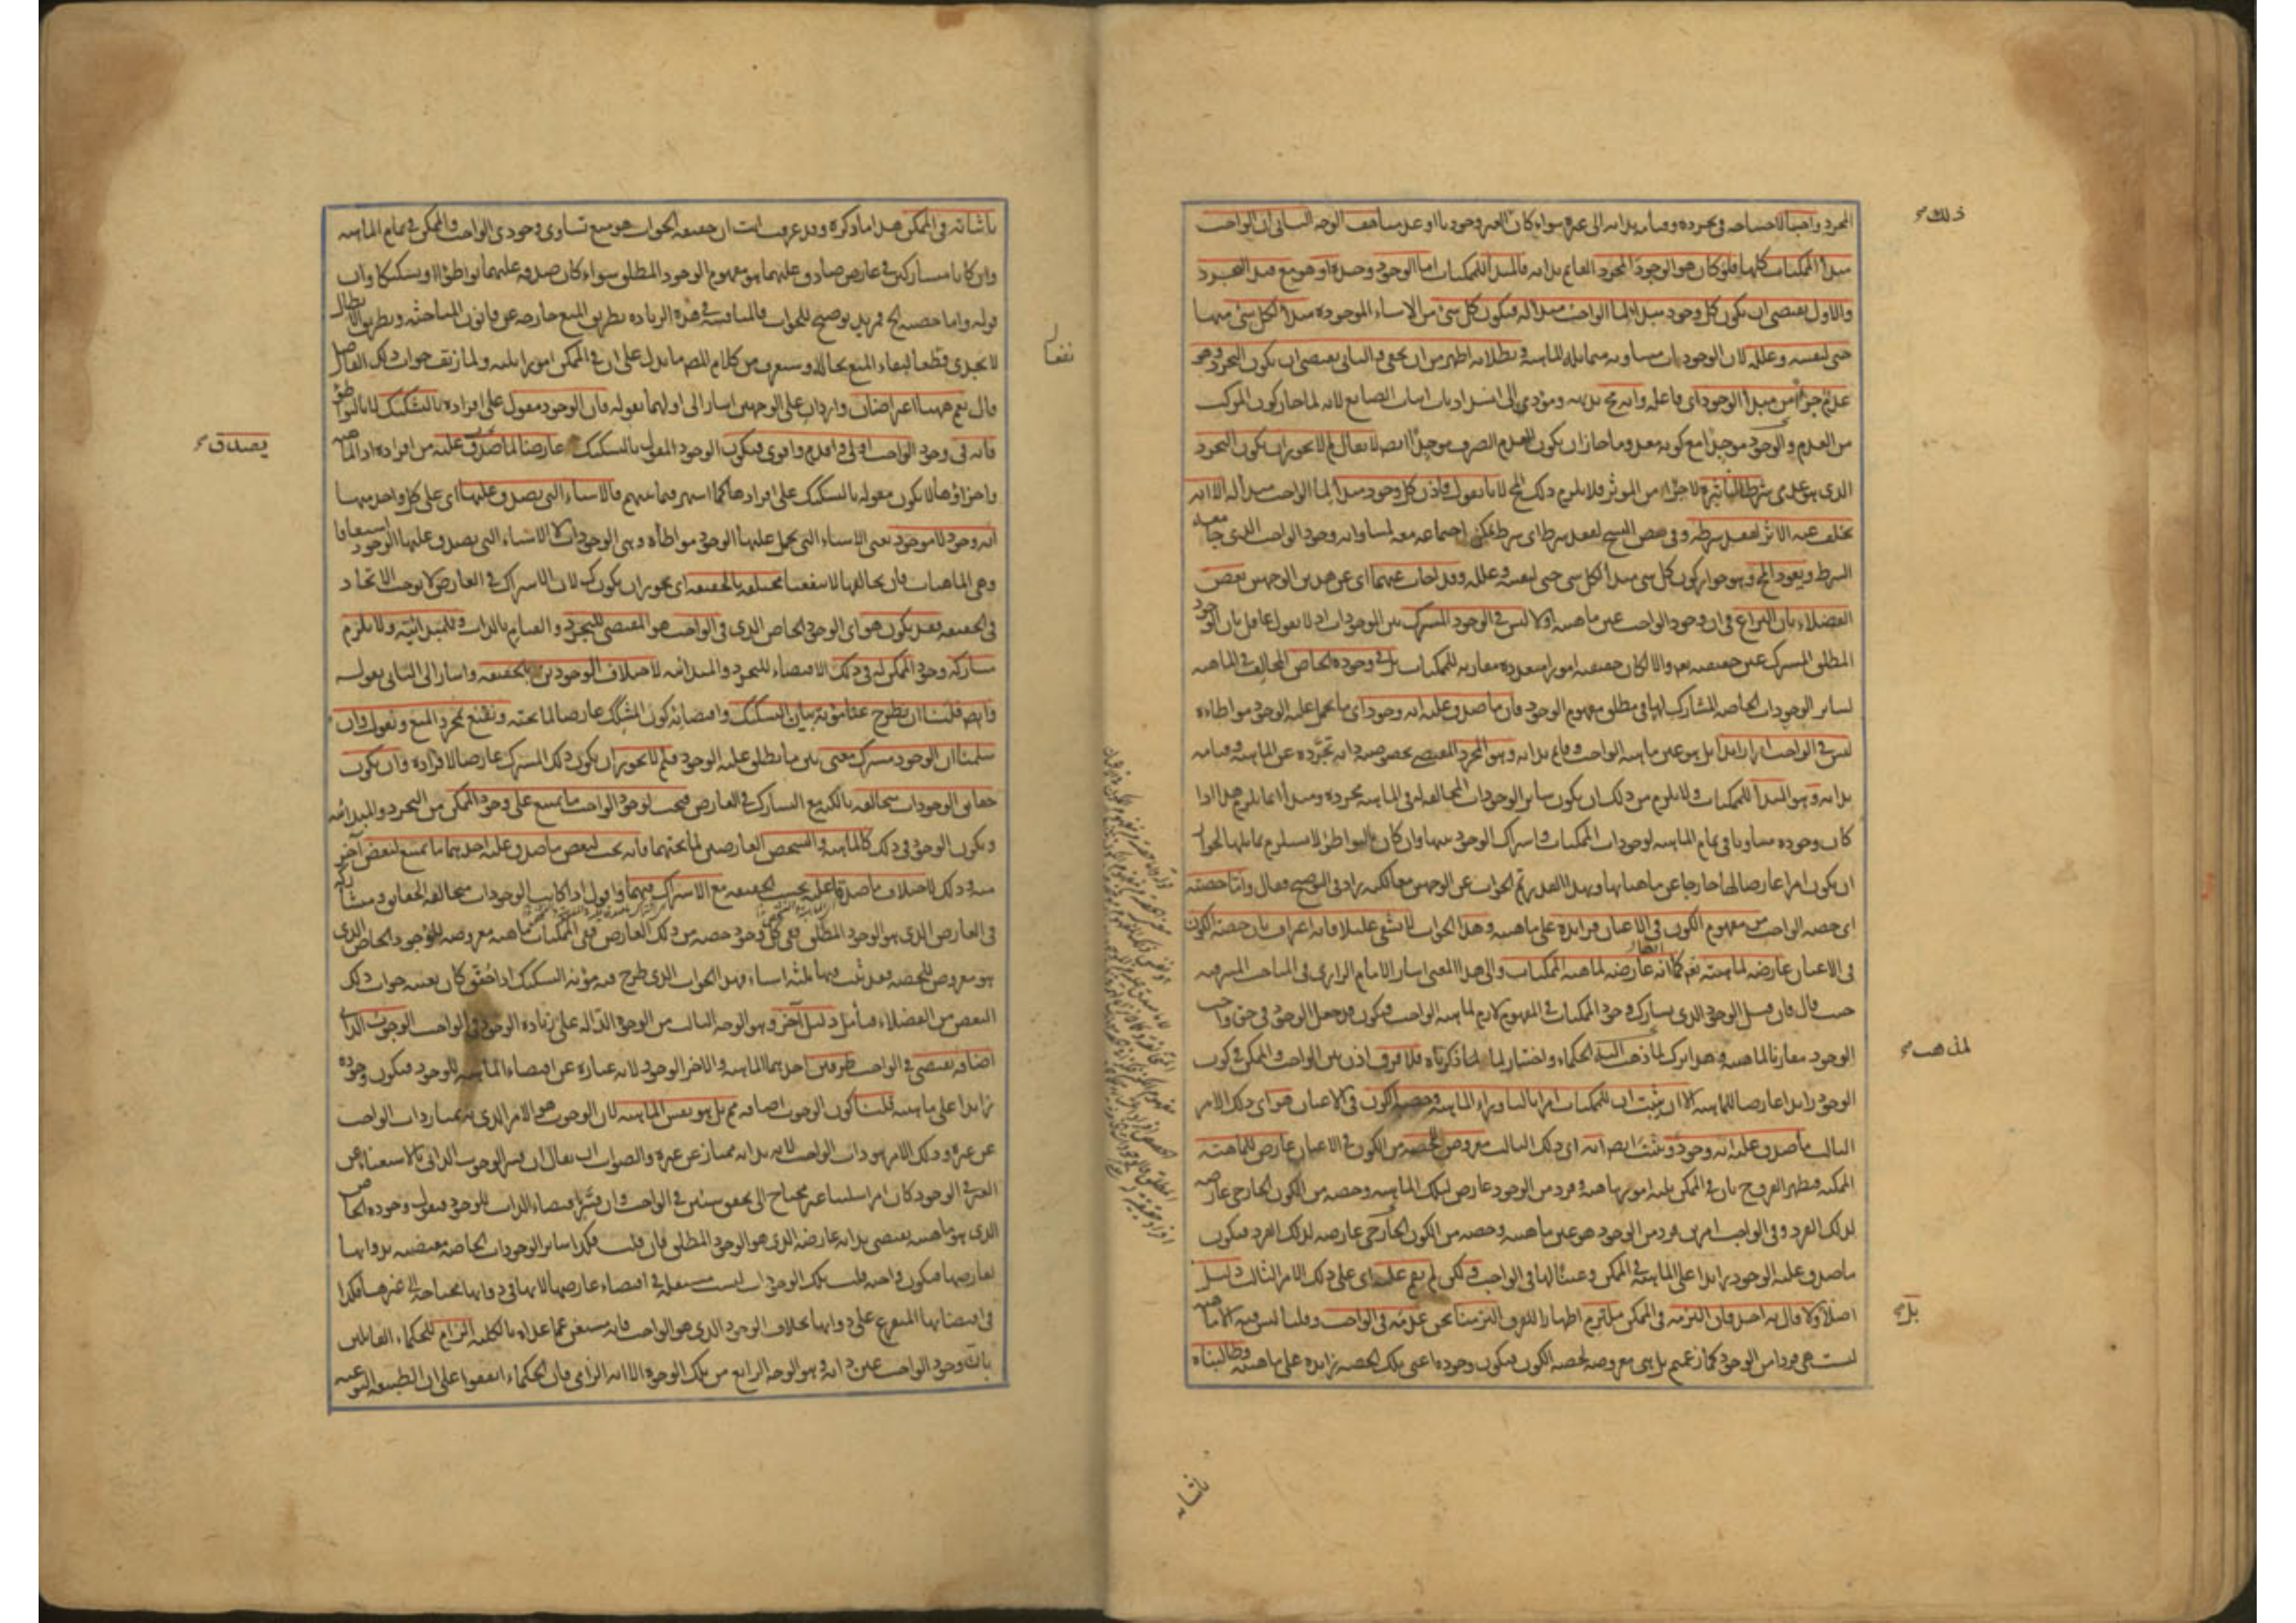 ذلك صح
المجرد واجبا لاحتياجه في تجرده وقيامه بذاته الى غيره سواء كان الغير وجوديا او عدميا هف الوجه الثاني ان الواجب
مبدأ الممكنات كلها فلو كان هو الوجود المجرد القائم بذاته فالمبدأ للممكنات اما الوجود وحده او هو مع قيد التجرد
والاول يقتضي ان يكون كل وجود مبدأ لما الواجب مبدأ له فيكون كل شئ من الاشياء الموجودة مبدأ لكل شئ منها
حتى لنفسه وعلله لان الوجودات متساوية متماثلة الماهية وبطلانه اظهر من ان يخفى والثاني يقتضي ان يكون التجرد وهو
عدم جزأ من مبدأ الوجود اى فاعله وانه مح بديهة ومؤدى الى انسداد باب اثبات الصانع لانه لما جاز كون المركب
من العدم والوجود موجدا مع كونه معدوما جاز ان يكون العدم الصرف موجدا ايضا لا يقال لم لا يجوز ان يكون التجرد
الذى هو عدمى شرطا لتأثيره لا جزأ من المؤثر فلا يلزم ذلك المح لانا نقول فاذن كل وجود مبدأ لما الواجب مبدأ له الا انه
تخلف عنه الاثر لفقد شرطه وفى بعض النسخ لفقد شرط اى شرط يمكن اجتماعه معه لمساواته وجود الواجب الذى جامعه
الشرط ويعود المح وهو جواز كون كل شئ مبدأ لكل شئ حتى لنفسه وعلله وقد اجاب عنهما اى عن هذين الوجهين بعض
الفضلاء بان النزاع فى ان وجود الواجب عين ماهيته اولا ليس فى الوجود المشترك بين الوجودات اذ لا يقول عاقل بان الوجود
المطلق المشترك عين حقيقته تعالى والا لكان حقيقته امورا متعددة مقارنة للممكنات بل فى وجوده الخاص المخالف فى الماهية
لسائر الوجودات الخاصة المشارك لها فى مطلق مفهوم الوجود فان ما صدق عليه انه وجود اى ما يحمل عليه الوجود مواطاة
ليس فى الواجب امرا زائدا بل هو عين ماهية الواجب وقائم بذاته وهو المجرد المقتضى بخصوصية ذاته تجرده عن الماهية وقيامه
بذاته وهو المبدأ للممكنات ولا يلزم من ذلك ان يكون سائر الوجودات المخالفة له فى الماهية مجردة ومبدأ انما يلزم هذا اذا
كان وجوده مساويا فى تمام الماهية لوجودات الممكنات واشتراك الوجود بينها وان كان بالتواطؤ لا يستلزم تماثلها لجواز
ان يكون امرا عارضا لها خارجا عن ماهياتها وبهذا القدر يتم الجواب عن الوجهين معا لكنه زاد فى التوضيح فقال واما حصته
اى حصة الواجب من مفهوم الكون فى الاعيان فزائدة على ماهيته وهذا الجواب لا يشفى عليلا فانه اعتراف بان حصة الكون
فى الاعيان عارضة لماهيته تعالى كما انه عارضة لماهية الممكنات والى هذا المعنى اشار الامام الرازى فى المباحث المشرقية
حيث قال فان قيل الوجود الذى يشارك وجود الممكنات فى المفهوم لازم لماهية الواجب فيكون قد جعل الوجود فى حق واجب
الوجود مقارنا لماهيته وهذا ترك لما ذهب اليه الحكماء واختيار لما ذكرناه فلا فرق اذن بين الواجب والممكن فى كون
لمذهب صح
الوجود زائدا عارضا للماهية الا ان يثبت ان للممكنات امرا ثالثا وراء الماهية وحصة الكون فى الاعيان هو اى ذلك الامر
الثالث ما صدق عليه انه وجود ويثبت ايضا انه اى ذلك الثالث معروض لحصة من الكون فى الاعيان عارض للماهية
الممكنة فيظهر الفرق ح بان فى الممكن ثلاثة امور ماهية وفرد من الوجود عارض لتلك الماهية وحصة من الكون الخارجى عارضة
لذلك الفرد وفى الواجب امرين فرد من الوجود هو عين ماهيته وحصة من الكون الخارجى عارضة لذلك الفرد فيكون
ما صدق عليه الوجود زائدا على الماهية فى الممكن وعينا لها فى الواجب ولكن لم يقم عليه اى على ذلك الامر الثالث دليل
اصلا ولا قال به احد فان التزمه فى الممكن ملتزم اظهارا للفرق التزمنا نحن عدمه فى الواجب وقلنا ليس فيه الا ماهية
بل صح
ليست هى فردا من الوجود كما زعمتم بل هى معروضة لحصة الكون فيكون وجوده اعنى تلك الحصة زائدة على ماهيته وطالبناه
باثباته
باثباته فى الممكن هذا ما ذكره وقد عرفت انت ان حقيقة الجواب هو منع تساوى وجودى الواجب والممكن فى تمام الماهية
وان كانا متشاركين فى عارض صادق عليهما هو مفهوم الوجود المطلق سواء كان صدقه عليهما تواطؤا او تشكيكا وان
قوله واما حصته الخ مزيد توضيح للجواب فالمناقشة فى هذه الزيادة بطريق المنع خارجة عن قانون المباحثة وبطريق الابطال
لا يجدى نفعا لبقاء المنع بحاله وستعرف من كلام المصنف ما يدل على ان فى الممكن امورا ثلثة ولما زيف جواب ذلك الفاضل
قال نعم ههنا اعتراضان واردان على الوجهين اشار الى اولهما بقوله فان الوجود مقول على افراده بالتشكيك لا بالتواطؤ
فانه فى وجود الواجب اولى واقدم واقوى فيكون الوجود المقول بالتشكيك عارضا لما صدق عليه من افراده اذ الماهية
يصدق صح
واجزاؤها لا يكون مقولة بالتشكيك على افرادها كما اشتهر فيما بينهم فالاشياء التى يصدق عليها اى على كل واحد منها
انه وجود لا موجود يعنى الاشياء التى يحمل عليها الوجود مواطاة وهى الوجودات لا الاشياء التى يصدق عليها الوجود اشتقاقا
وهى الماهيات فان تخالفها لا ينفعنا مختلفة بالحقيقة اى يجوز ان يكون كك لان الاشتراك فى العارض لا يوجب الاتحاد
فى الحقيقة فقد يكون هو اى الوجود الخاص الذى فى الواجب هو المقتضى للتجرد والقيام بالذات وللمبدائية ولا يلزم
مشاركة وجود الممكن له فى ذلك الاقتضاء للتجرد والمبدائية لاختلاف الوجودين بالحقيقة واشار الى الثانى بقوله
وايضا فلنا ان نطرح عنا مؤنة بيان التشكيك واقتضائه كون المشكك عارضا لما تحته ونقنع بمجرد المنع ونقول وان
سلمنا ان الوجود مشترك معنى بين ما يطلق عليه الوجود فلم لا يجوز ان يكون ذلك المشترك عارضا لافراده وان يكون
حقائق الوجودات متخالفة بالكنه مع التشارك فى العارض فيجب لوجود الواجب ما يمتنع على وجود الممكن من التجرد والمبدائية
ويكون الوجود فى ذلك كالماهية والتشخص العارضين لما تحتهما فانه يجب لبعض ما صدق عليه احدهما ما يمتنع لبعض آخر
منه وذلك لاختلاف ما صدقا عليه بحسب الحقيقة مع الاشتراك فيهما واقول اذا كانت الوجودات متخالفة الحقائق ومتشاركة
فى العارض الذى هو الوجود المطلق ففى كل وجود حصة من ذلك العارض ففى الممكنات ماهية معروضة للوجود الخاص الذى
هو معروض للحصة فقد ثبت فيها ثلثة اشياء وهذا الجواب الذى طرح فيه مؤنة التشكيك اذا حقق كان بعينه جواب ذلك
البعض من الفضلاء فتأمل دليل آخر وهو الوجه الثالث من الوجوه الدالة على زيادة الوجود فى الواجب الوجوب الذاتى
اضافة يقتضى فى الواجب طرفين احدهما الماهية والاخر الوجود لانه عبارة عن اقتضاء الماهية للوجود فيكون وجوده
زائدا على ماهيته قلنا كون الوجوب اضافة مم بل هو نفس الماهية لان الوجوب هو الامر الذى به يمتاز ذات الواجب
عن غيره وذلك الامر هو ذات الواجب لانه بذاته ممتاز عن غيره والصواب ان يقال ان فسر الوجوب الذاتى بالاستغناء عن
الغير فى الوجود كان امرا سلبيا غير محتاج الى تحقق شيئين فى الواجب وان فسر باقتضاء الذات للوجود فنقول وجوده الخاص
الذى هو ماهيته يقتضى بذاته عارضه الذى هو الوجود المطلق فان قلت فكذا سائر الوجودات الخاصة مقتضية بذواتها
لعارضها فيكون واجبة قلت تلك الوجودات ليست مستقلة فى اقتضاء عارضها لانها فى ذواتها محتاجة الى غيرها فكذا
فى اقتضائها المتفرع على ذواتها بخلاف الوجود الذى هو الواجب فانه مستغن عما عداه بالكلية الزام للحكماء القائلين
بان وجود الواجب عين ذاته وهو الوجه الرابع من تلك الوجوه الا انه الزامى فان الحكماء اتفقوا على ان الطبيعة النوعية